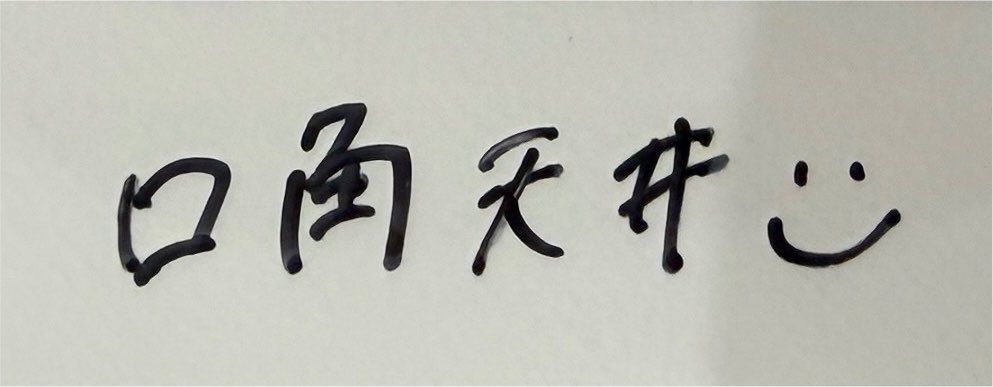 口角天井